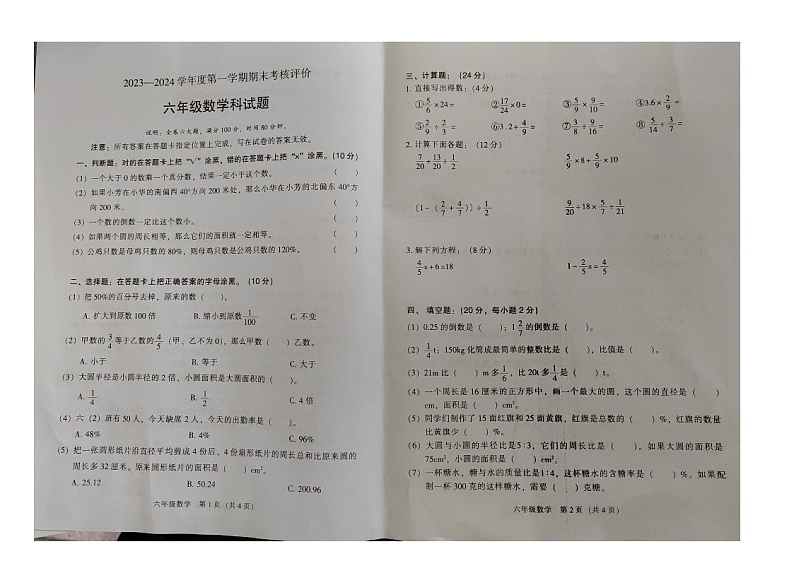 2023—2024 学年度第一学期期末考核评价
六年级数学科试题
说明：全卷六大题，满分 100 分，时间 80 分钟。
注意：所有答案在答题卡指定位置上完成，写在试卷的答案无效。
一、判断题：对的在答题卡上把“√”涂黑，错的在答题卡上把“×”涂黑。(10 分)
（1）一个大于 0 的数乘一个真分数，结果一定小于这个数。 （ ）
（2）如果小芳在小华的南偏西 40°方向 200 米处，那么小华在小芳的北偏东 40°方
向 200 米。 （ ）
（3）一个数的倒数一定比这个数小。 （ ）
（4）如果两个圆的周长相等，那么它们的面积就一定相等。 （ ）
（5）公鸡只数是母鸡只数的 80%，则母鸡只数是公鸡只数的 120%。 （ ）
二、选择题：在答题卡上把正确答案的字母涂黑。(10 分)
（1）把 50%的百分号去掉，原来的数（ ）。
A. 扩大到原数 100 倍 B. 缩小到原数 1/100 C. 不变
（2）甲数的 3/4 等于乙数的 4/5 （甲、乙不为 0），那么甲数（ ）乙数。
A. 小于 B. 等于 C. 大于
（3）大圆半径是小圆半径的 2 倍，小圆面积是大圆面积的（ ）。
A. 1/4 B. 1/2 C. 4 倍
（4）六（2）班有 50 人，今天缺席 2 人，今天的出勤率是（ ）。
A. 48% B. 4% C. 96%
（5）把一张圆形纸片沿直径平均剪成 4 份后，4 份扇形纸片的周长总和比原来圆的
周长多 32 厘米。原来圆形纸片的面积是（ ）cm²。
A. 25.12 B. 50.24 C. 200.96
六年级数学 第 1 页（共 4 页）
三、计算题：（24 分）
1. 直接写出得数：（4 分）
①5/6×24= ②17/24×0= ③5/9×9/10= ④3.6×2/9=
⑤2/9÷2/3= ⑥3.2÷4/9= ⑦3/8÷9/16= ⑧5/14÷3/7=
2. 计算下面各题：（12 分）
7/20÷13/20÷1/2 5/9×8+5/9×10
［1-（2/7+4/7）］÷1/2 9/20÷18×5/7÷1/21
3. 解下列方程：（8 分）
4/5x+6=18 1-2/5x=4/5
四、 填空题：（20 分，每小题 2 分）
（1）0.25 的倒数是（ ）；1 2/7 的倒数是（ ）。
（2）1/4t：150kg 化简成最简单的整数比是（ ），比值是（ ）。
（3）21m 比（ ）m 多 1/6，比 20t 多 1/4 是（ ）t。
（4）一个周长是 16 厘米的正方形中，画一个最大的圆，这个圆的直径是（ ）
cm，面积是（ ）cm²。
（5）同学们制作了 15 面红旗和 25 面黄旗，红旗是总数的（ ）%，红旗的数量
比黄旗少（ ）%。
（6）大圆与小圆的半径比是5∶3，它们的周长比是（ ）。如果大圆的面积是
75cm²，小圆的面积是（ ）cm²。
（7）一杯糖水，糖与水的质量比是1∶4，这杯糖水的含糖率是（ ）%。如果配
制一杯 300 克的这样糖水，需要（ ）克糖。
六年级数学 第 2 页（共 4 页）